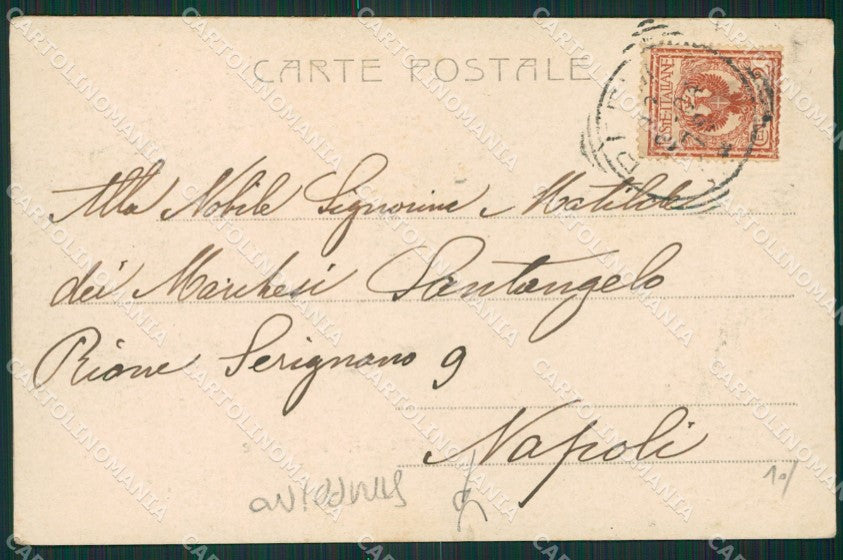 CARTE POSTALE
POSTE ITALIANE
Alla Nobile Signorina Matilde
dei Marchesi Santangelo
Rione Serignano 9
Napoli
CARTOLINOMANIA